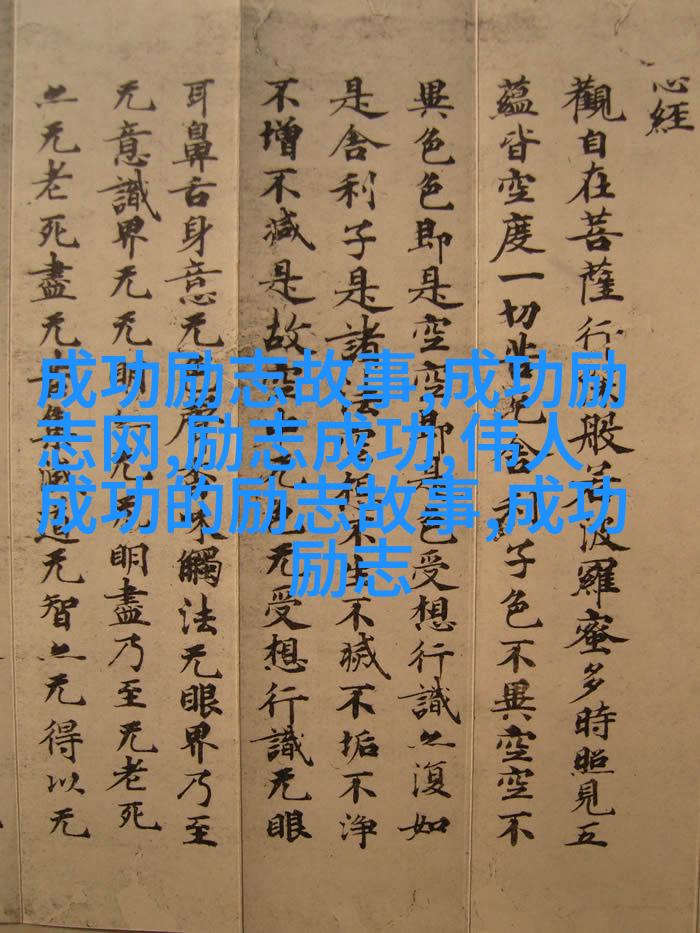 心經
觀自在菩薩行深般若波羅蜜多時照見五
蘊皆空度一切苦厄舍利子色不異空空不
異色色即是空空即是色受想行識亦復如
是舍利子是諸法空相不生不滅不垢不淨
不增不減是故空中无色无受想行識无眼
耳鼻舌身意无色聲香味觸法无眼界乃至
无意識界无无明亦无无明盡乃至无老死
亦无老死盡无苦集滅道无智亦无得以无
成功励志故事,成功励
志网,励志成功,伟人
成功的励志故事,成功
励志